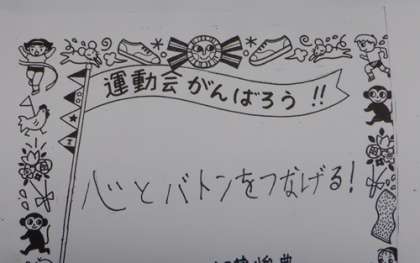 運動会がんばろう!!
心とバトンをつなげる!